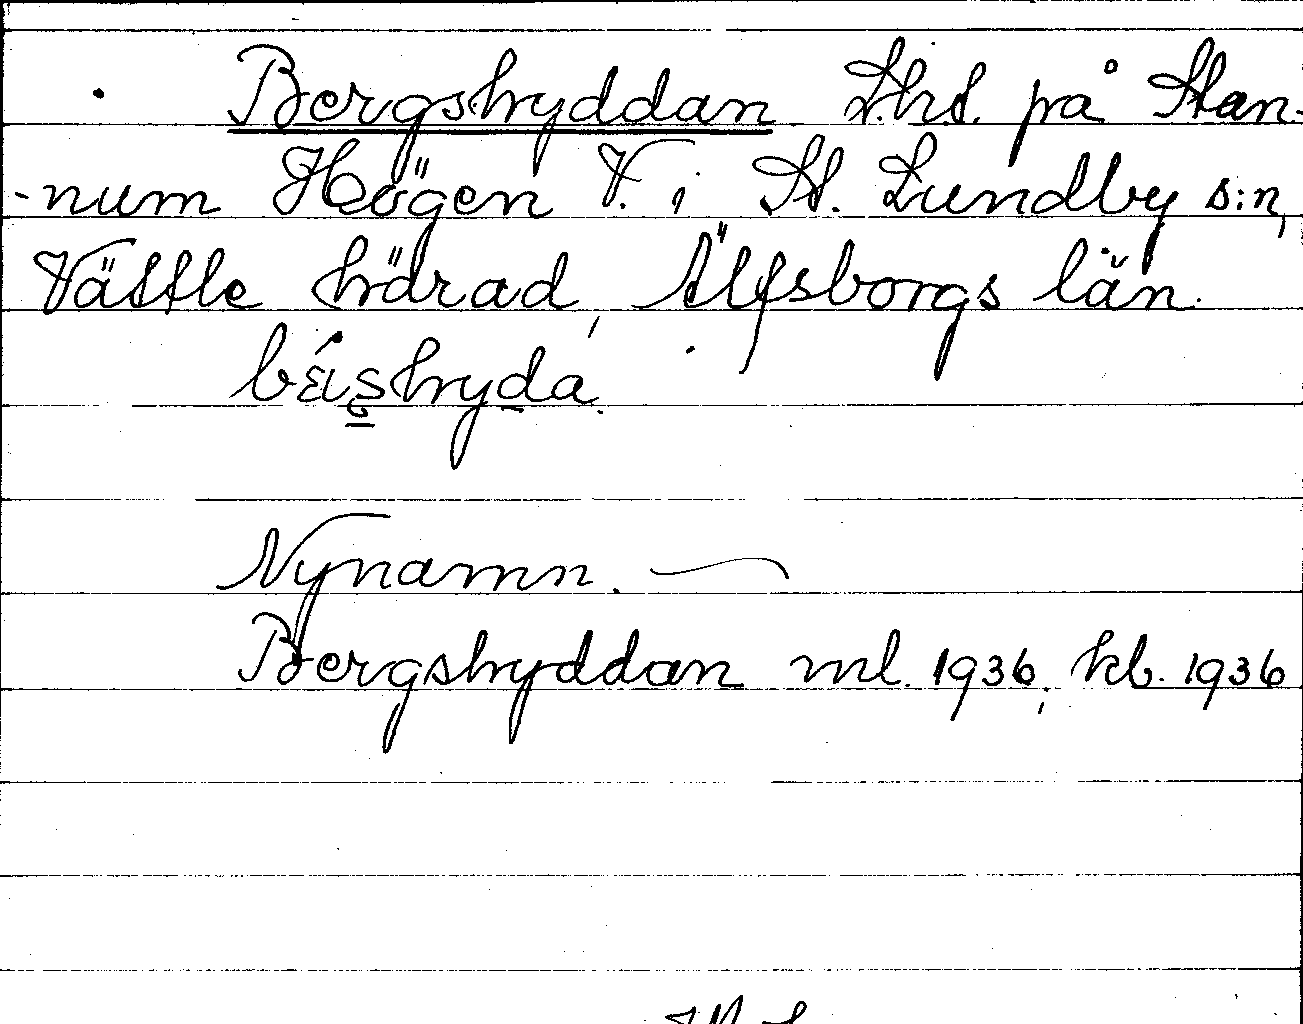 Bergshyddan Lht. på Stan-
-num Högen V. i St. Lundby s:n,
Vättle härad, Älfsborgs län.
Nynamn.
Bergshyddan ml. 1936; kb. 1936